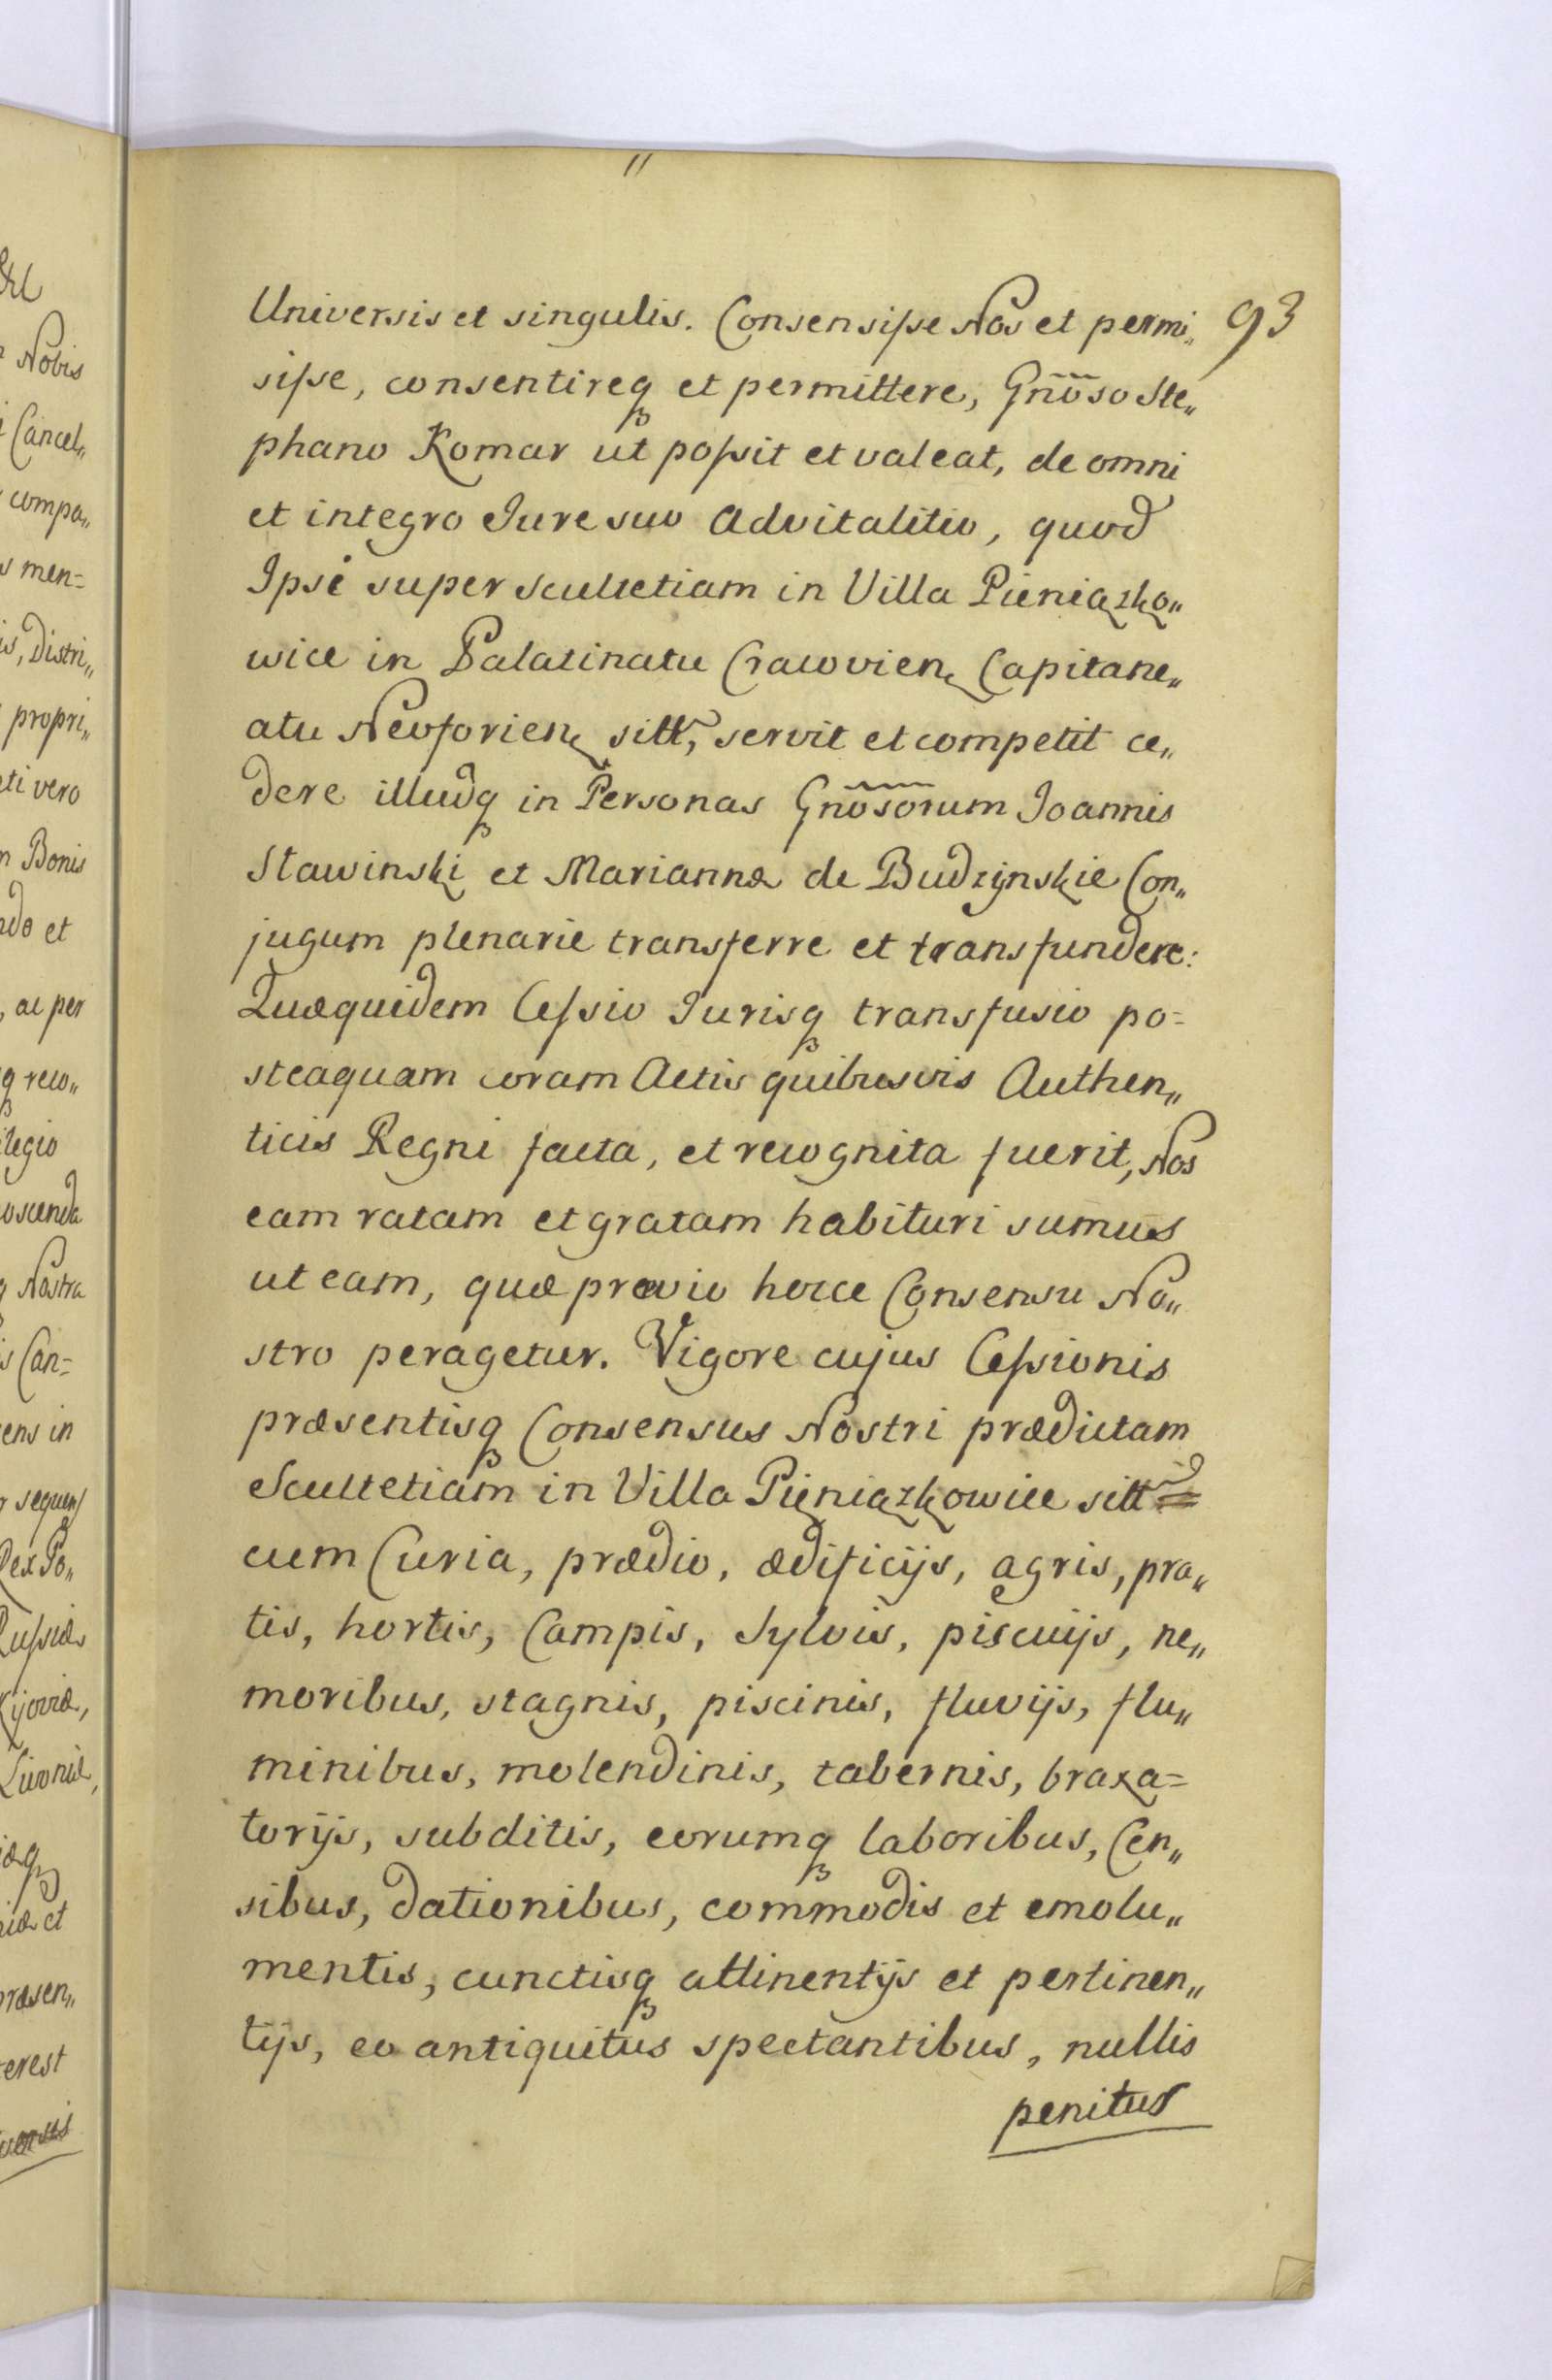 Universis et singulis. Consensiſse Nos et permi„ 93
siſse, consentireqꝫ et permittere, Gnõso Ste„
phano Komar ut poſsit et valeat, de omni
et integro Jure suo Advitalitio, quod
Ipsi super Scultetiam in Villa Pieniążko„
wice in Palatinatu Cracovien, Capitane„
atu Neoforien, sitt, servit et competit ce„
dere illudqꝫ in Personas Gnõsorum Joannis
Stawinski et Mariannæ de Budzynskie Con„
jugum plenarie transferre et transfundere:
Quæquidem Ceſsio Jurisqꝫ transfusio po=
steaquam coram Actis quibusvis Authen„
ticis Regni facta, et recognita fuerit, Nos
eam ratam et gratam habituri sumus
ut eam, quæ prævio hocce Consensu No„
stro peragetur. Vigore cujus Ceſsionis
præsentisqꝫ Consensus Nostri prædictam
Scultetiam in Villa Pieniążkowice sitt
cum Curia, prædio, ædificijs, agris, pra„
tis, hortis, Campis, Sylvis, piscuijs, ne„
moribus, stagnis, piscinis, fluvijs, flu„
minibus, molendinis, tabernis, braxa=
torijs, subditis, eorumqꝫ laboribus, Cen„
sibus, dationibus, commodis et emolu„
mentis, cunctisqꝫ attinentijs et pertinen„
tijs, eo antiquitus spectantibus, nullis
penitus